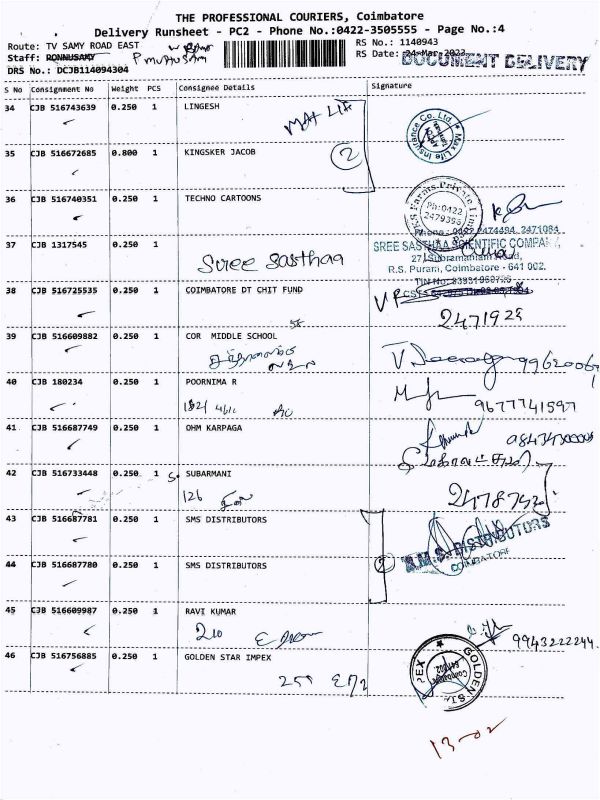 THE PROFESSIONAL COURIERS, Coimbatore
Delivery Runsheet - PC2 - Phone No.:0422-3505555 - Page No.:4
Route: TV SAMY ROAD EAST
RS No.: 1140943
Staff: RONNUSAMY
RS Date: 24-Mar-2023
DOCUMENT DELIVERY
DRS No.: DCJB114094304
S No Consignment No Weight PCS Consignee Details Signature
34 CJB 516743639 0.250 1 LINGESH
Max Life Insurance Co. Ltd.
35 CJB 516672685 0.800 1 KINGSKER JACOB
2
36 CJB 516740351 0.250 1 TECHNO CARTOONS
Ph:0422
2479395
Phone: 0422 2474494, 2471084
37 CJB 1317545 0.250 1
Sree Sasthaa
SREE SASTHAA SCIENTIFIC COMPANY,
27, Subramaniam Road,
R.S. Puram, Coimbatore - 641 002.
38 CJB 516725535 0.250 1 COIMBATORE DT CHIT FUND
39 CJB 516609882 0.250 1 COR MIDDLE SCHOOL
40 CJB 180234 0.250 1 POORNIMA R
9677741597
41 CJB 516687749 0.250 1 OHM KARPAGA
42 CJB 516733448 0.250 1 SUBARMANI
126
43 CJB 516687781 0.250 1 SMS DISTRIBUTORS
DISTRIBUTORS
COIMBATORE
44 CJB 516687780 0.250 1 SMS DISTRIBUTORS
2
45 CJB 516609987 0.250 1 RAVI KUMAR
210
9943222244
46 CJB 516756885 0.250 1 GOLDEN STAR IMPEX
13-02